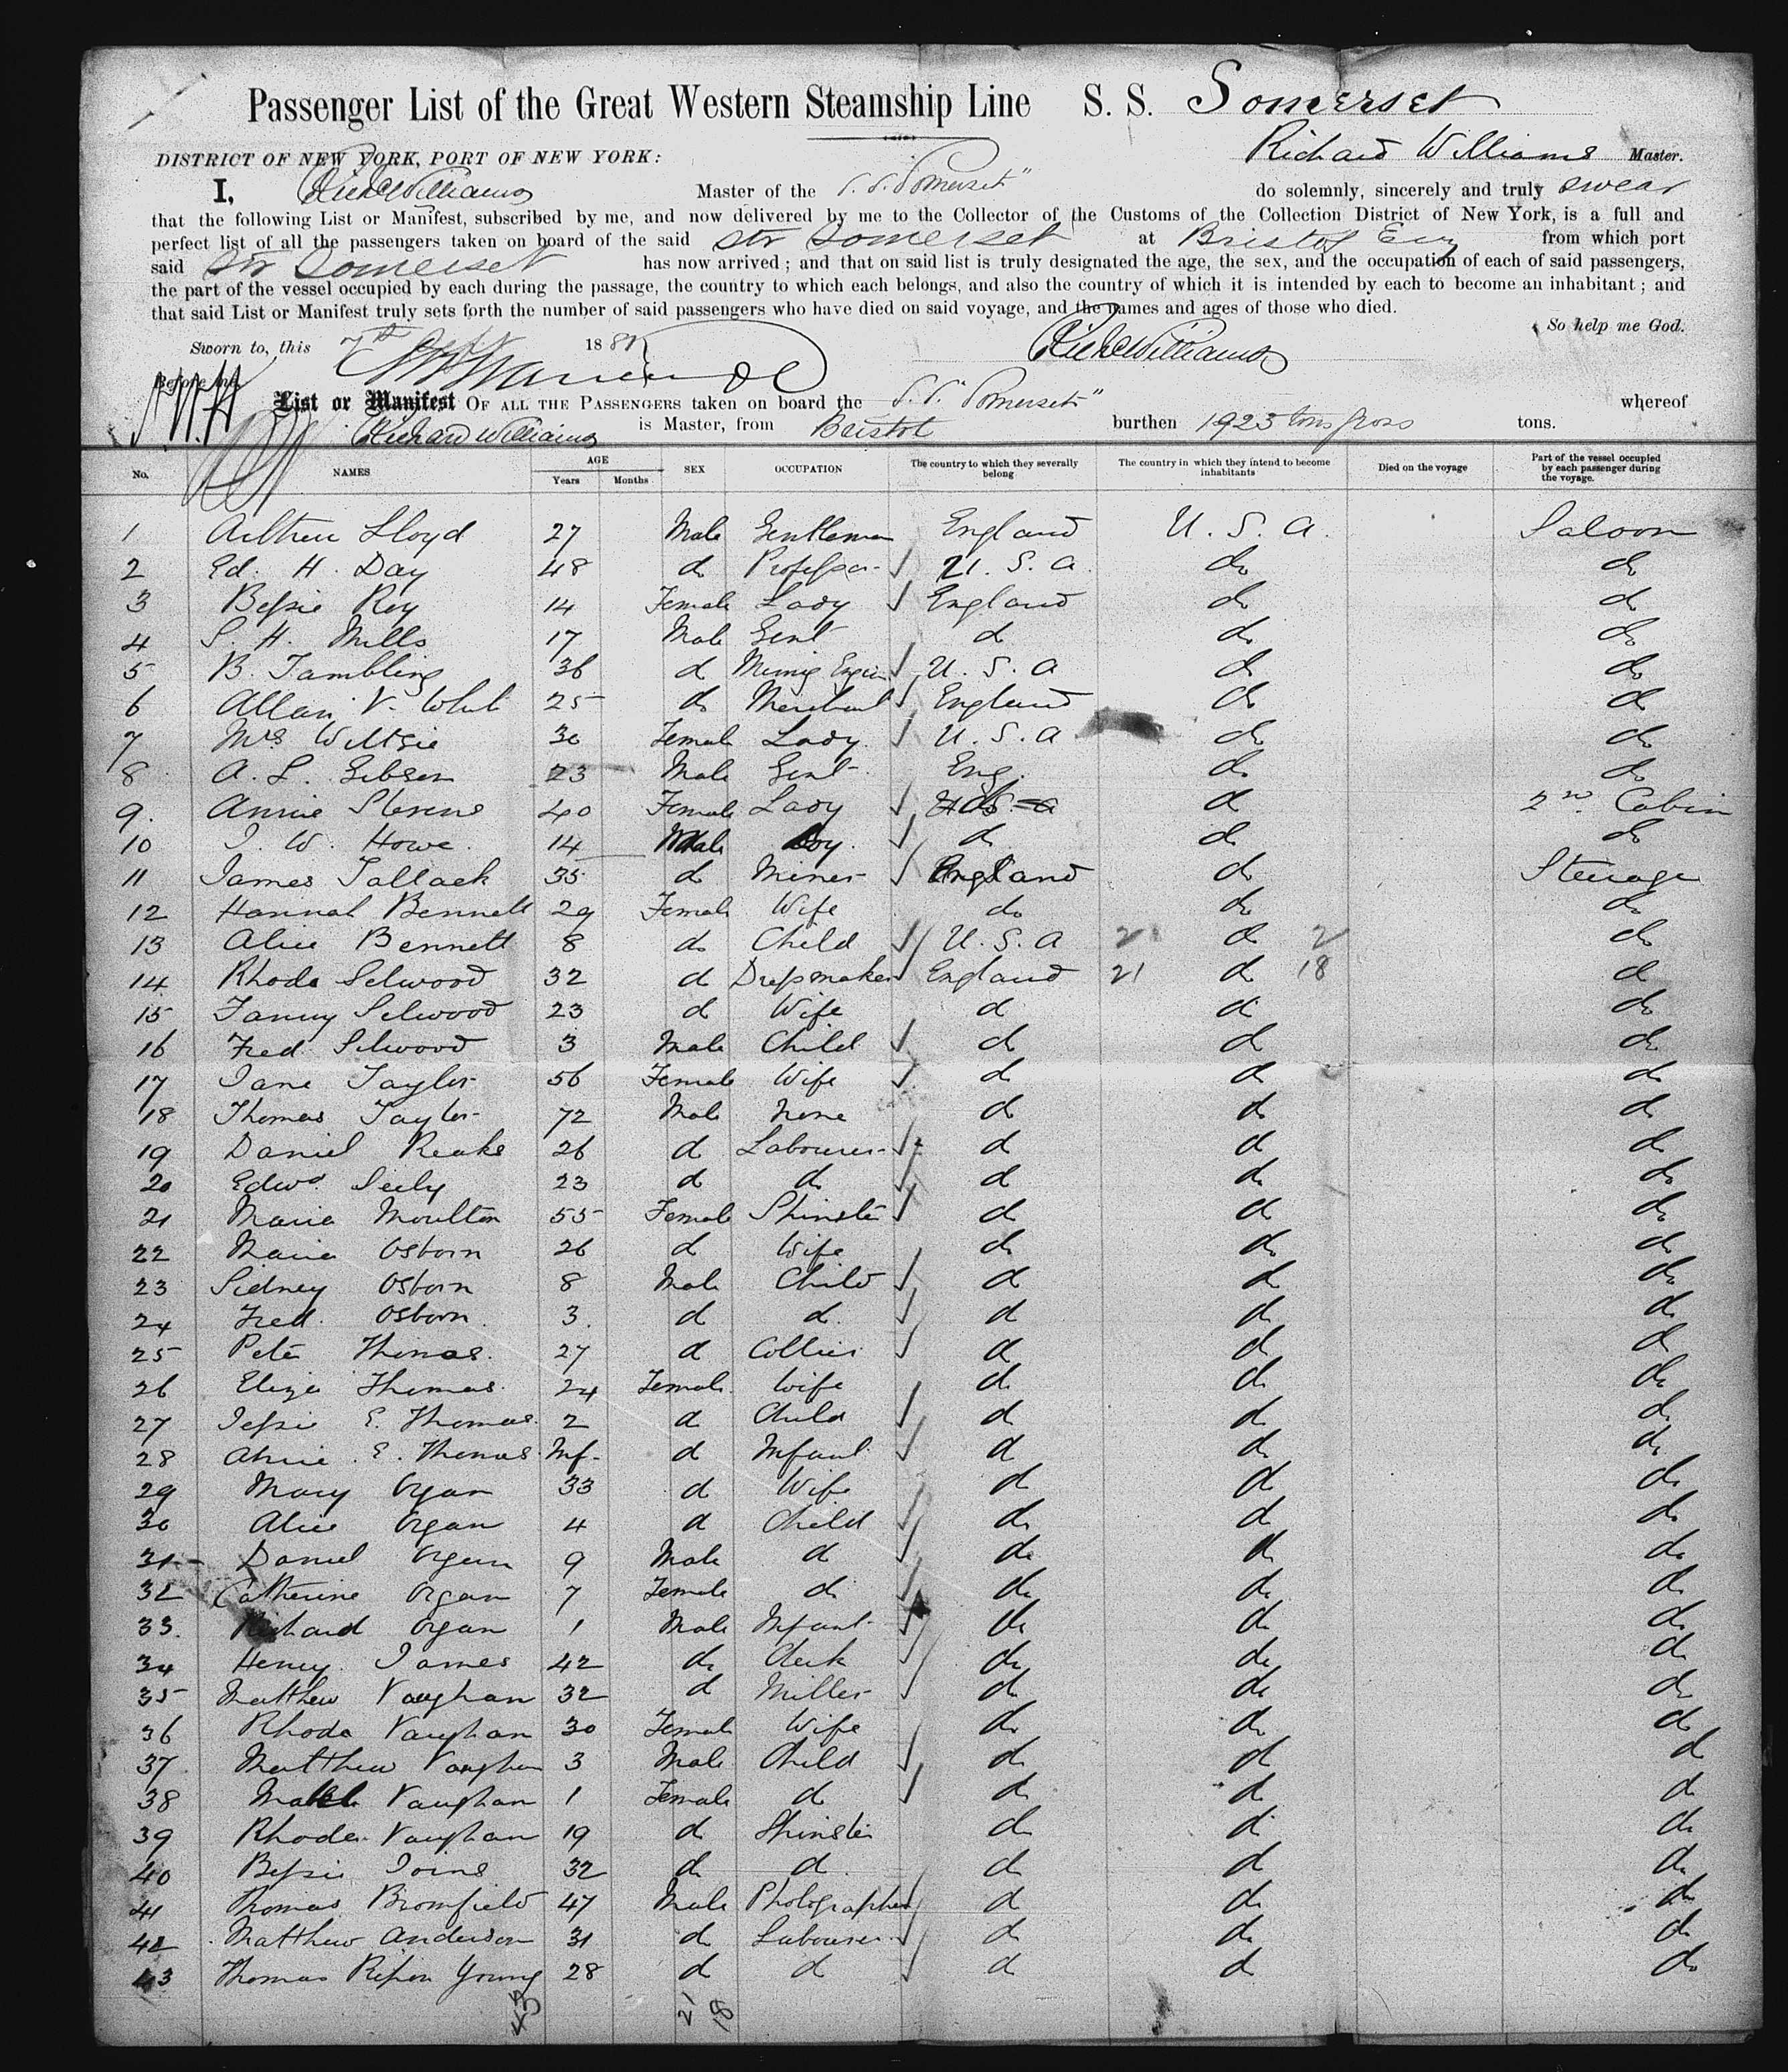 Passenger List of the Great Western Steamship Line S. S. Somerset
DISTRICT OF NEW YORK, PORT OF NEW YORK: Richard Williams Master.
I, Richd Williams Master of the S.S. "Somerset" do solemnly, sincerely and truly swear
that the following List or Manifest, subscribed by me, and now delivered by me to the Collector of the Customs of the Collection District of New York, is a full and
perfect list of all the passengers taken on board of the said Str Somerset at Bristol Eng from which port
said Str Somerset has now arrived ; and that on said list is truly designated the age, the sex, and the occupation of each of said passengers,
the part of the vessel occupied by each during the passage, the country to which each belongs, and also the country of which it is intended by each to become an inhabitant ; and
that said List or Manifest truly sets forth the number of said passengers who have died on said voyage, and the names and ages of those who died.
So help me God.
Sworn to, this 7th 188 Richd Williams
Before me,
List or Manifest OF ALL THE PASSENGERS taken on board the S.S. "Somerset" whereof
Richard Williams is Master, from Bristol burthen 1923 tons gross tons.
No. NAMES AGE Years Months SEX OCCUPATION The country to which they severally belong The country in which they intend to become inhabitants Died on the voyage Part of the vessel occupied by each passenger during the voyage.
1 Arthur Lloyd 27 Male Gentleman England U. S. A. Saloon
2 Ed. H. Day 48 do Professor U. S. A. do do
3 Bessie Roy 14 Female Lady England do do
4 S. H. Mills 17 Male Gent do do do
5 B. Tambling 36 do Mining Engin U. S. A do do
6 Allan V. White 25 do Merchant England do do
7 Mrs Wiltsie 30 Female Lady U. S. A do do
8 A. L. Gibson 23 Male Gent Eng. do do
9. Annie Stevens 40 Female Lady do 2nd Cabin
10 J. W. Howe 14 Male Boy do do do
11 James Tallack 35 do Miner England do Steerage
12 Hannah Bennett 29 Female Wife do do do
13 Alice Bennett 8 do Child U. S. A 2 do 2 do
14 Rhoda Selwood 32 do Dressmaker England 21 do 18 do
15 Fanny Selwood 23 do Wife do do do
16 Fred Selwood 3 Male Child do do do
17 Jane Taylor 56 Female Wife do do do
18 Thomas Taylor 72 Male None do do do
19 Daniel Reake 26 do Labourer do do do
20 Edwd. Seely 23 do do do do do
21 Maria Moulton 55 Female Spinster do do do
22 Maria Osborn 26 do Wife do do do
23 Sidney Osborn 8 Male Child do do do
24 Fred. Osborn 3. do do do do do
25 Peter Thomas 27 do Collier do do do
26 Eliza Thomas 24 Female Wife do do do
27 Jessie E. Thomas 2 do Child do do do
28 Annie E. Thomas Inf. do Infant do do do
29 Mary Organ 33 do Wife do do do
30 Alice Organ 4 do Child do do do
31 Daniel Organ 9 Male do do do do
32 Catherine Organ 7 Female do do do do
33. Richard Organ 1 Male Infant do do do
34 Henry James 42 do Clerk do do do
35 Matthew Vaughan 32 do Miller do do do
36 Rhoda Vaughan 30 Female Wife do do do
37 Matthew Vaughan 3 Male Child do do do
38 Mabel Vaughan 1 Female do do do do
39 Rhoda Vaughan 19 do Spinster do do do
40 Bessie Joins 32 do do do do do
41 Thomas Bromfield 47 Male Photographer do do do
42 Matthew Anderson 31 do Labourer do do do
43 Thomas Ripon Young 28 do do do do do
43 21 18